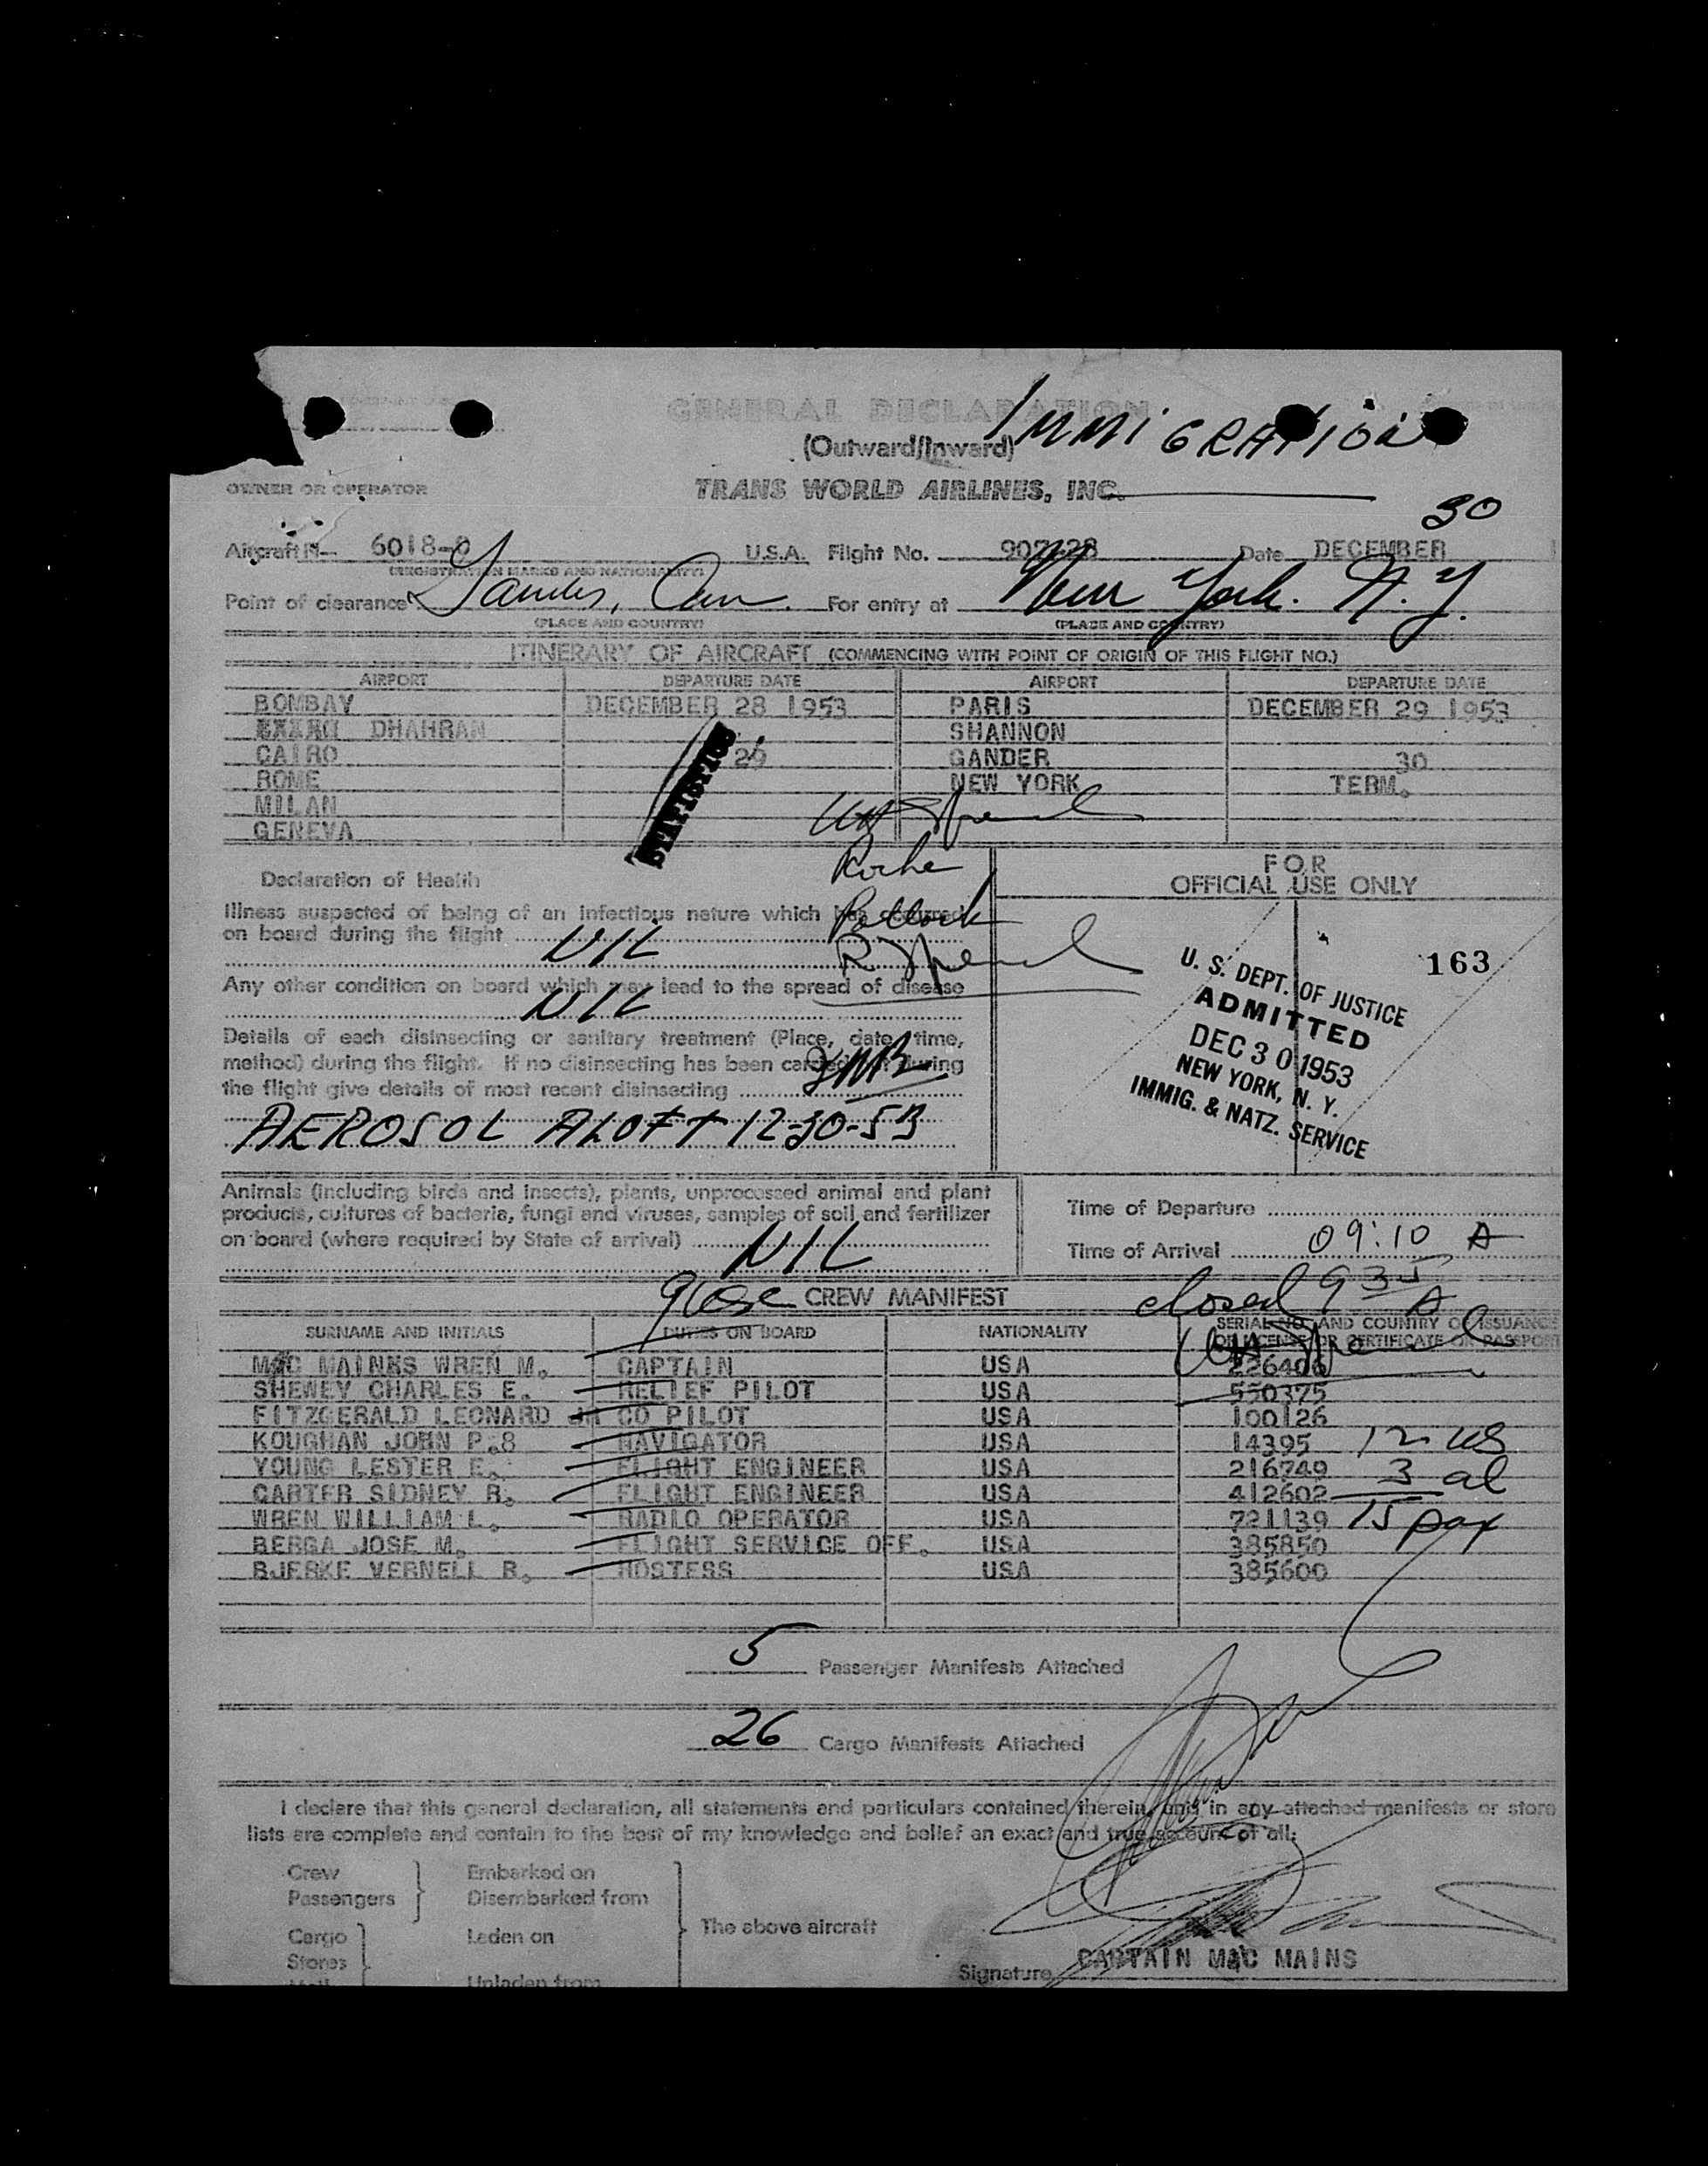 GENERAL DECLARATION
IMMIGRATION
(Outward/Inward)
OWNER OR OPERATOR
TRANS WORLD AIRLINES, INC.
30
Aircraft N— 6018-C U.S.A. Flight No. Date DECEMBER
(REGISTRATION MARKS AND NATIONALITY)
Point of clearance Gander, Can. For entry at New York. N.Y.
(PLACE AND COUNTRY) (PLACE AND COUNTRY)
ITINERARY OF AIRCRAFT (COMMENCING WITH POINT OF ORIGIN OF THIS FLIGHT NO.)
AIRPORT DEPARTURE DATE AIRPORT DEPARTURE DATE
BOMBAY DECEMBER 28 1953 PARIS DECEMBER 29 1953
DHAHRAN SHANNON
CAIRO 29 GANDER 30
ROME NEW YORK TERM.
MILAN
GENEVA
STATISTICS
Roche
Pollock
Declaration of Health
FOR
OFFICIAL USE ONLY
Illness suspected of being of an infectious nature which has occurred
on board during the flight NIL
Any other condition on board which may lead to the spread of disease
NIL
Details of each disinsecting or sanitary treatment (Place, date, time,
method) during the flight. If no disinsecting has been carried out during
the flight give details of most recent disinsecting
AEROSOL ALOFT 12-30-53
163
U. S. DEPT. OF JUSTICE
ADMITTED
DEC 30 1953
NEW YORK, N. Y.
IMMIG. & NATZ. SERVICE
Animals (including birds and insects), plants, unprocessed animal and plant
products, cultures of bacteria, fungi and viruses, samples of soil and fertilizer
on board (where required by State of arrival)
NIL
Time of Departure
Time of Arrival 09:10 A
closed 9 35 A
CREW MANIFEST
SURNAME AND INITIALS DUTIES ON BOARD NATIONALITY SERIAL NO. AND COUNTRY OF ISSUANCE
OF LICENSE OR CERTIFICATE OR PASSPORT
MAC MAINKS WREN M. CAPTAIN USA 226406
SHEWEY CHARLES E. RELIEF PILOT USA 550375
FITZGERALD LEONARD JR CO PILOT USA 100126
KOUGHAN JOHN P.8 NAVIGATOR USA 14395 12 US
YOUNG LESTER E. FLIGHT ENGINEER USA 216749 3 al
CARTER SIDNEY R. FLIGHT ENGINEER USA 412602
WREN WILLIAM L. RADIO OPERATOR USA 721139 15 pax
BERGA JOSE M. FLIGHT SERVICE OFF. USA 385850
BJERKE VERNELL B. HOSTESS USA 385600
5 Passenger Manifests Attached
26 Cargo Manifests Attached
I declare that this general declaration, all statements and particulars contained therein, and in any attached manifests or store
lists are complete and contain to the best of my knowledge and belief an exact and true account of all:
Crew Embarked on
Passengers Disembarked from
The above aircraft
Cargo Laden on
Stores
Mail Unladen from
Signature CAPTAIN MAC MAINS